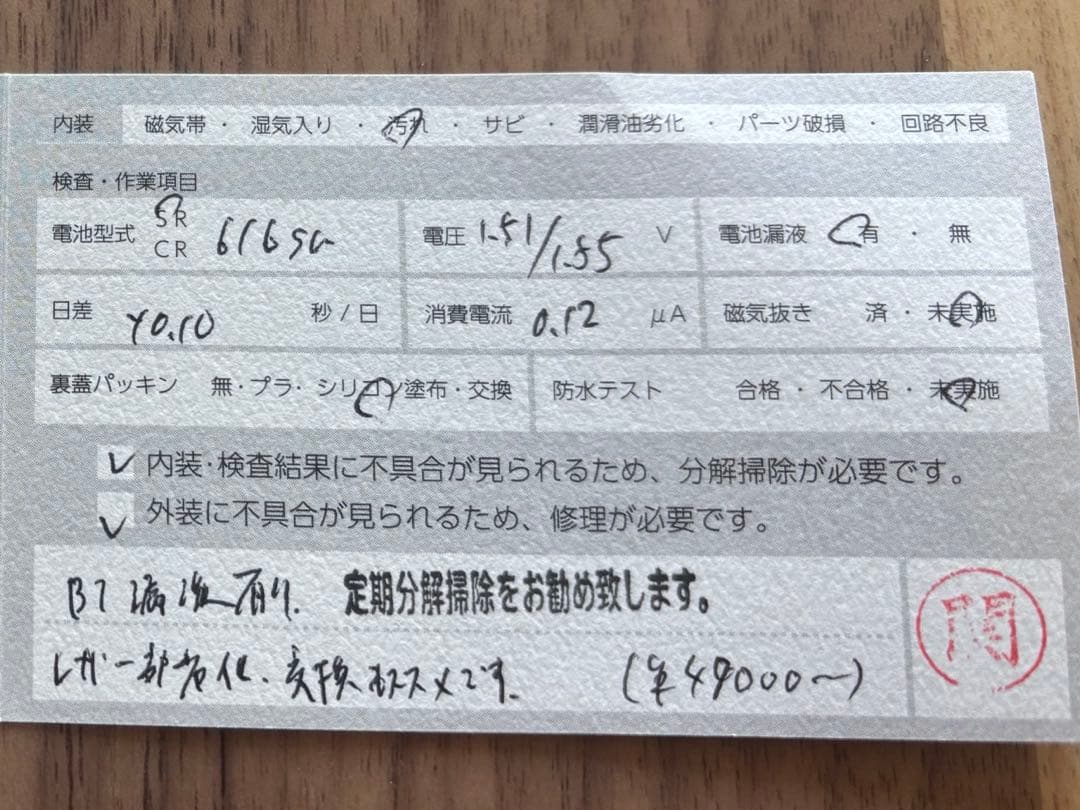 内装 磁気帯・湿気入り・汚れ・サビ・潤滑油劣化・パーツ破損・回路不良
検査・作業項目
電池型式 SR CR 616SW 電圧 1.51/1.55 V 電池漏液 有・無
日差 +0.10 秒/日 消費電流 0.12 μA 磁気抜き 済・未実施
裏蓋パッキン 無・プラ・シリコン塗布・交換 防水テスト 合格・不合格・未実施
✓ 内装・検査結果に不具合が見られるため、分解掃除が必要です。
✓ 外装に不具合が見られるため、修理が必要です。
BT漏液有り。 定期分解掃除をお勧め致します。
一部劣化、交換オススメです。 (¥49000〜)
関